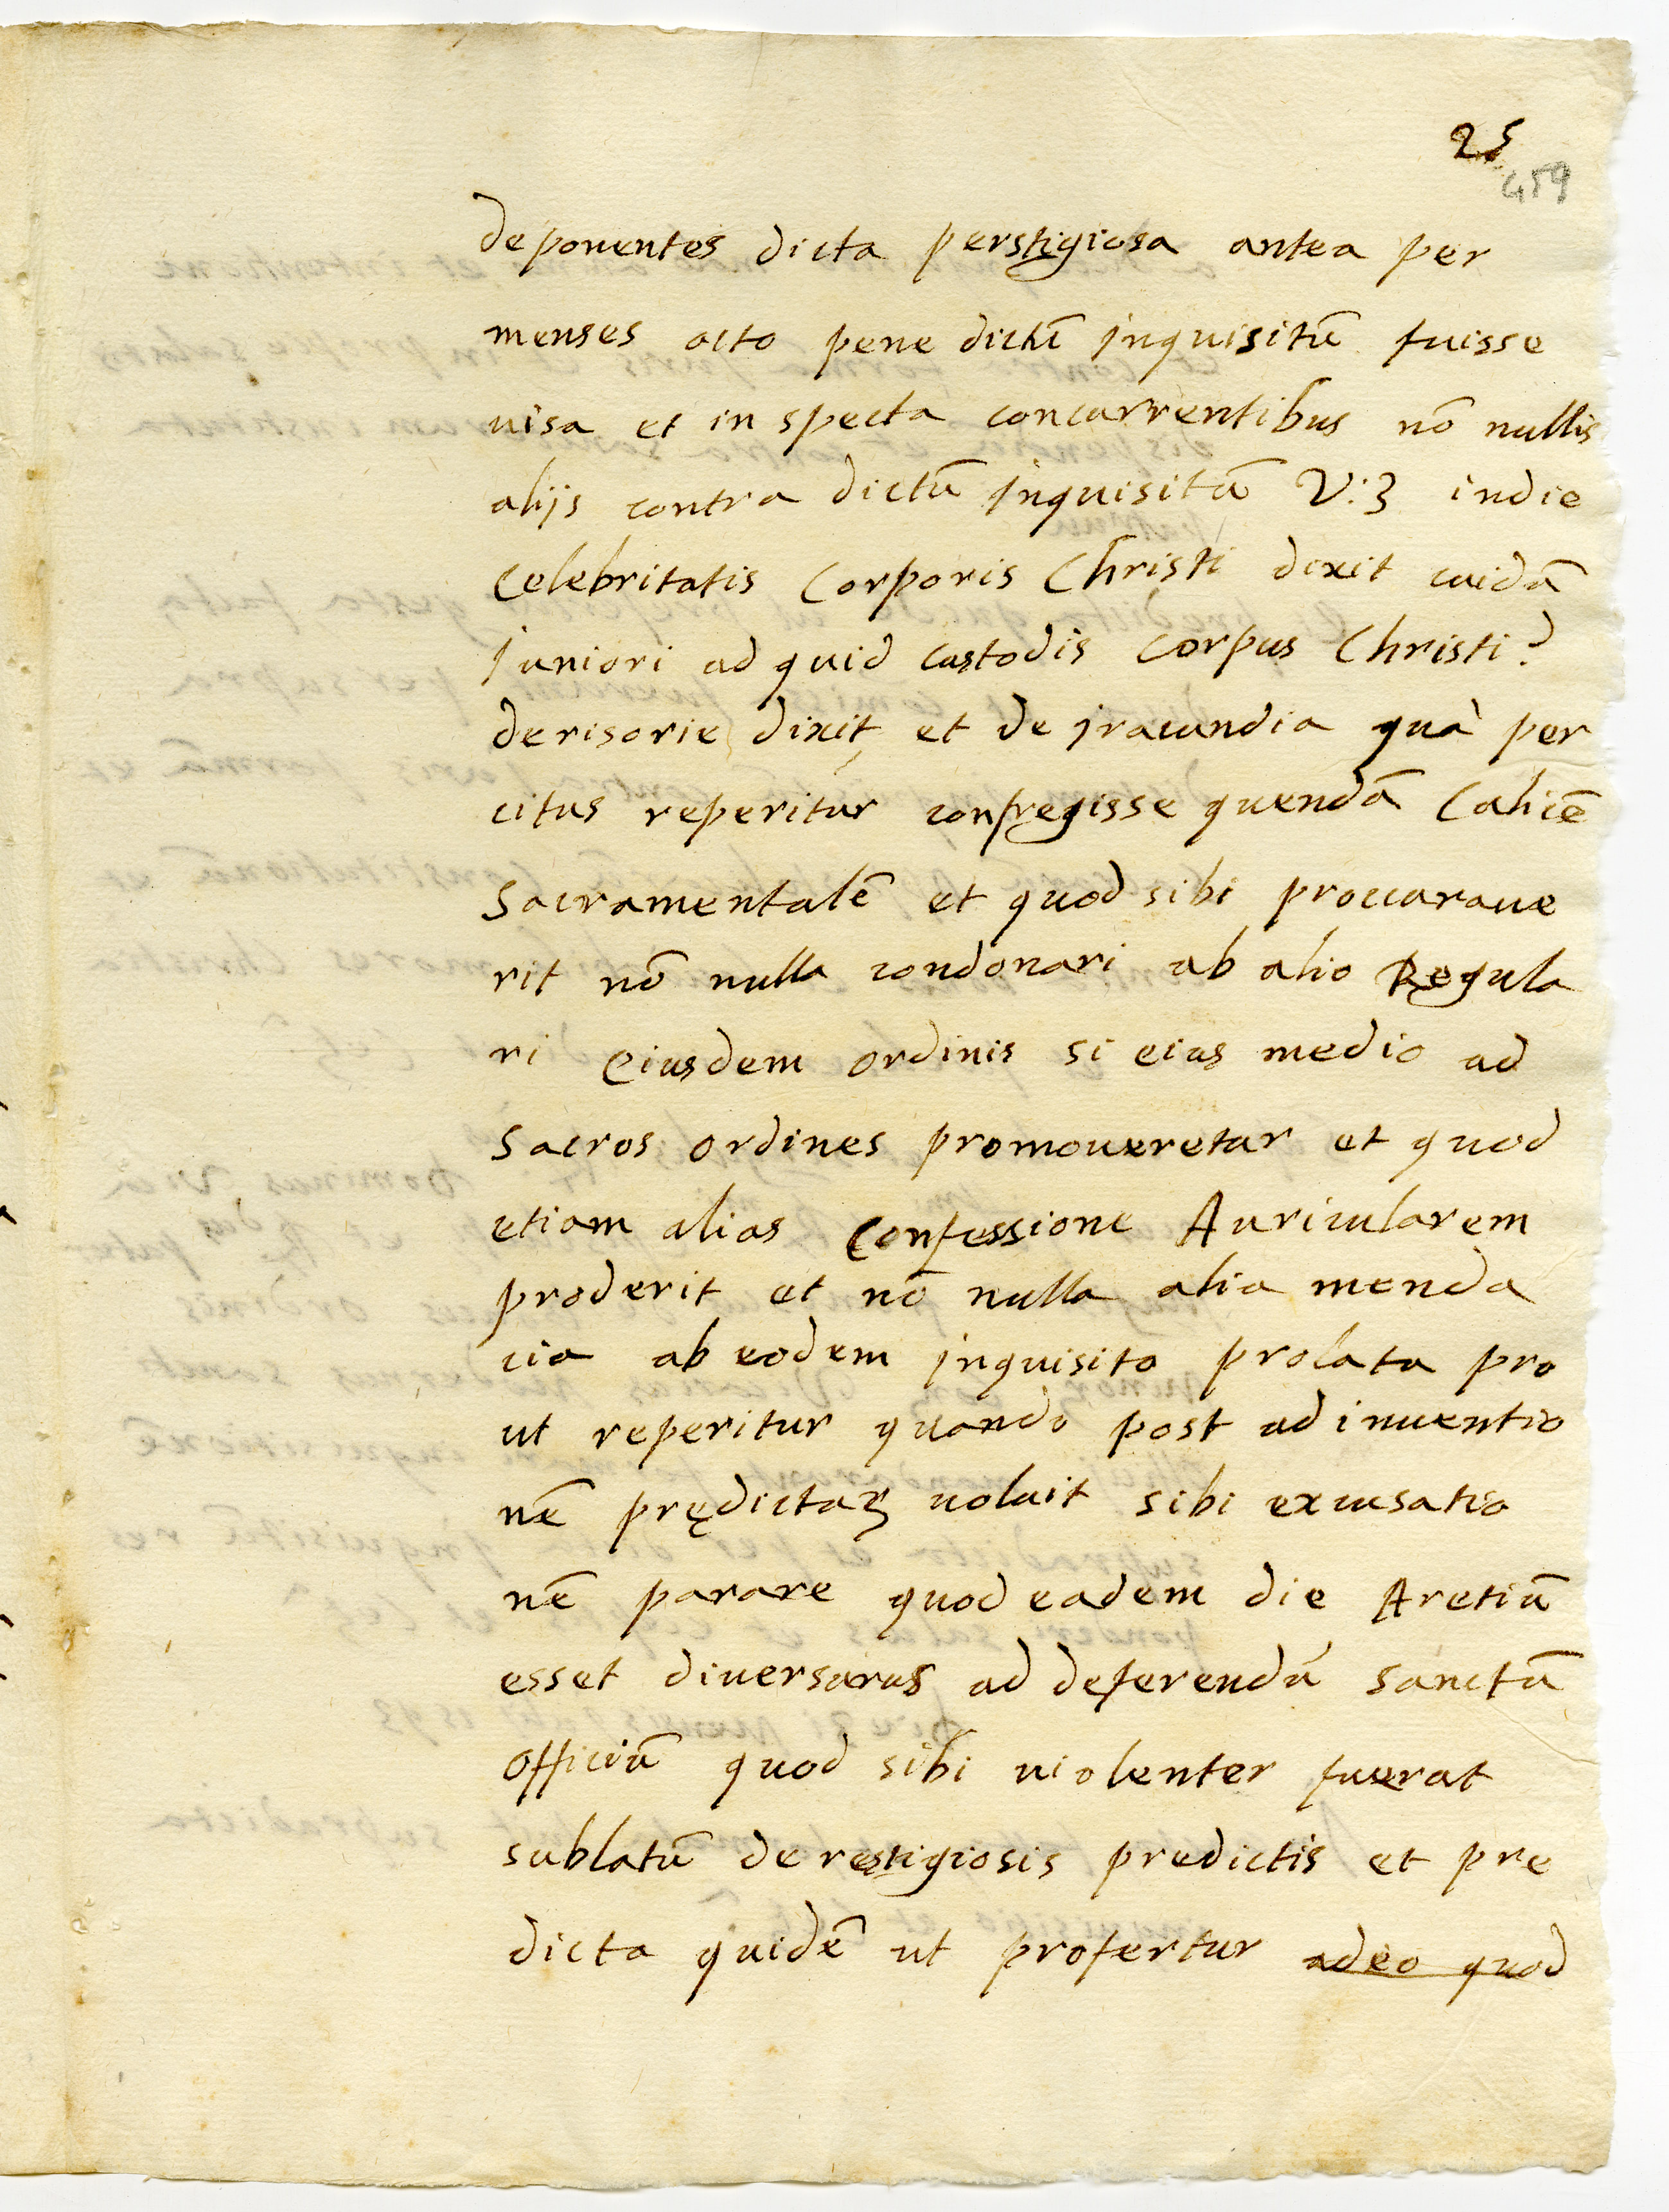 25
459
deponentes dicta perstigiosa antea per
menses octo pene dictũ jnquisitũ fuisse
uisa et in specta concurrentibus nõ nullis
alijs contra dictũ jnquisitũ V:3 indie
Celebritatis Corporis Christi dixit cuidã
juniori ad quid custodis Corpus Christi?
derisorie dixit et de jracundia qua per
citus reperitur confregisse quendã Calicẽ
Sacramentalẽ et quod sibi proccuraue
rit nõ nulla condonari ab alio Regula
ri Eiusdem ordinis si eius medio ad
Sacros ordines promoueretur et quod
etiam alias Confessione Auricularem
proderit et nõ nulla alia menda
cia ab eodem jnquisito prolata pro
ut reperitur quando post ad inuentio
nẽ prędictaꝝ uoluit sibi excusatio
nẽ parare quod eadem die Aretiũ
esset diuersurus ad deferendũ sanctũ
officiũ quod sibi uiolenter fuerat
sublatũ de restigiosis predictis et pre
dicta quidẽ ut profertur adeo quod